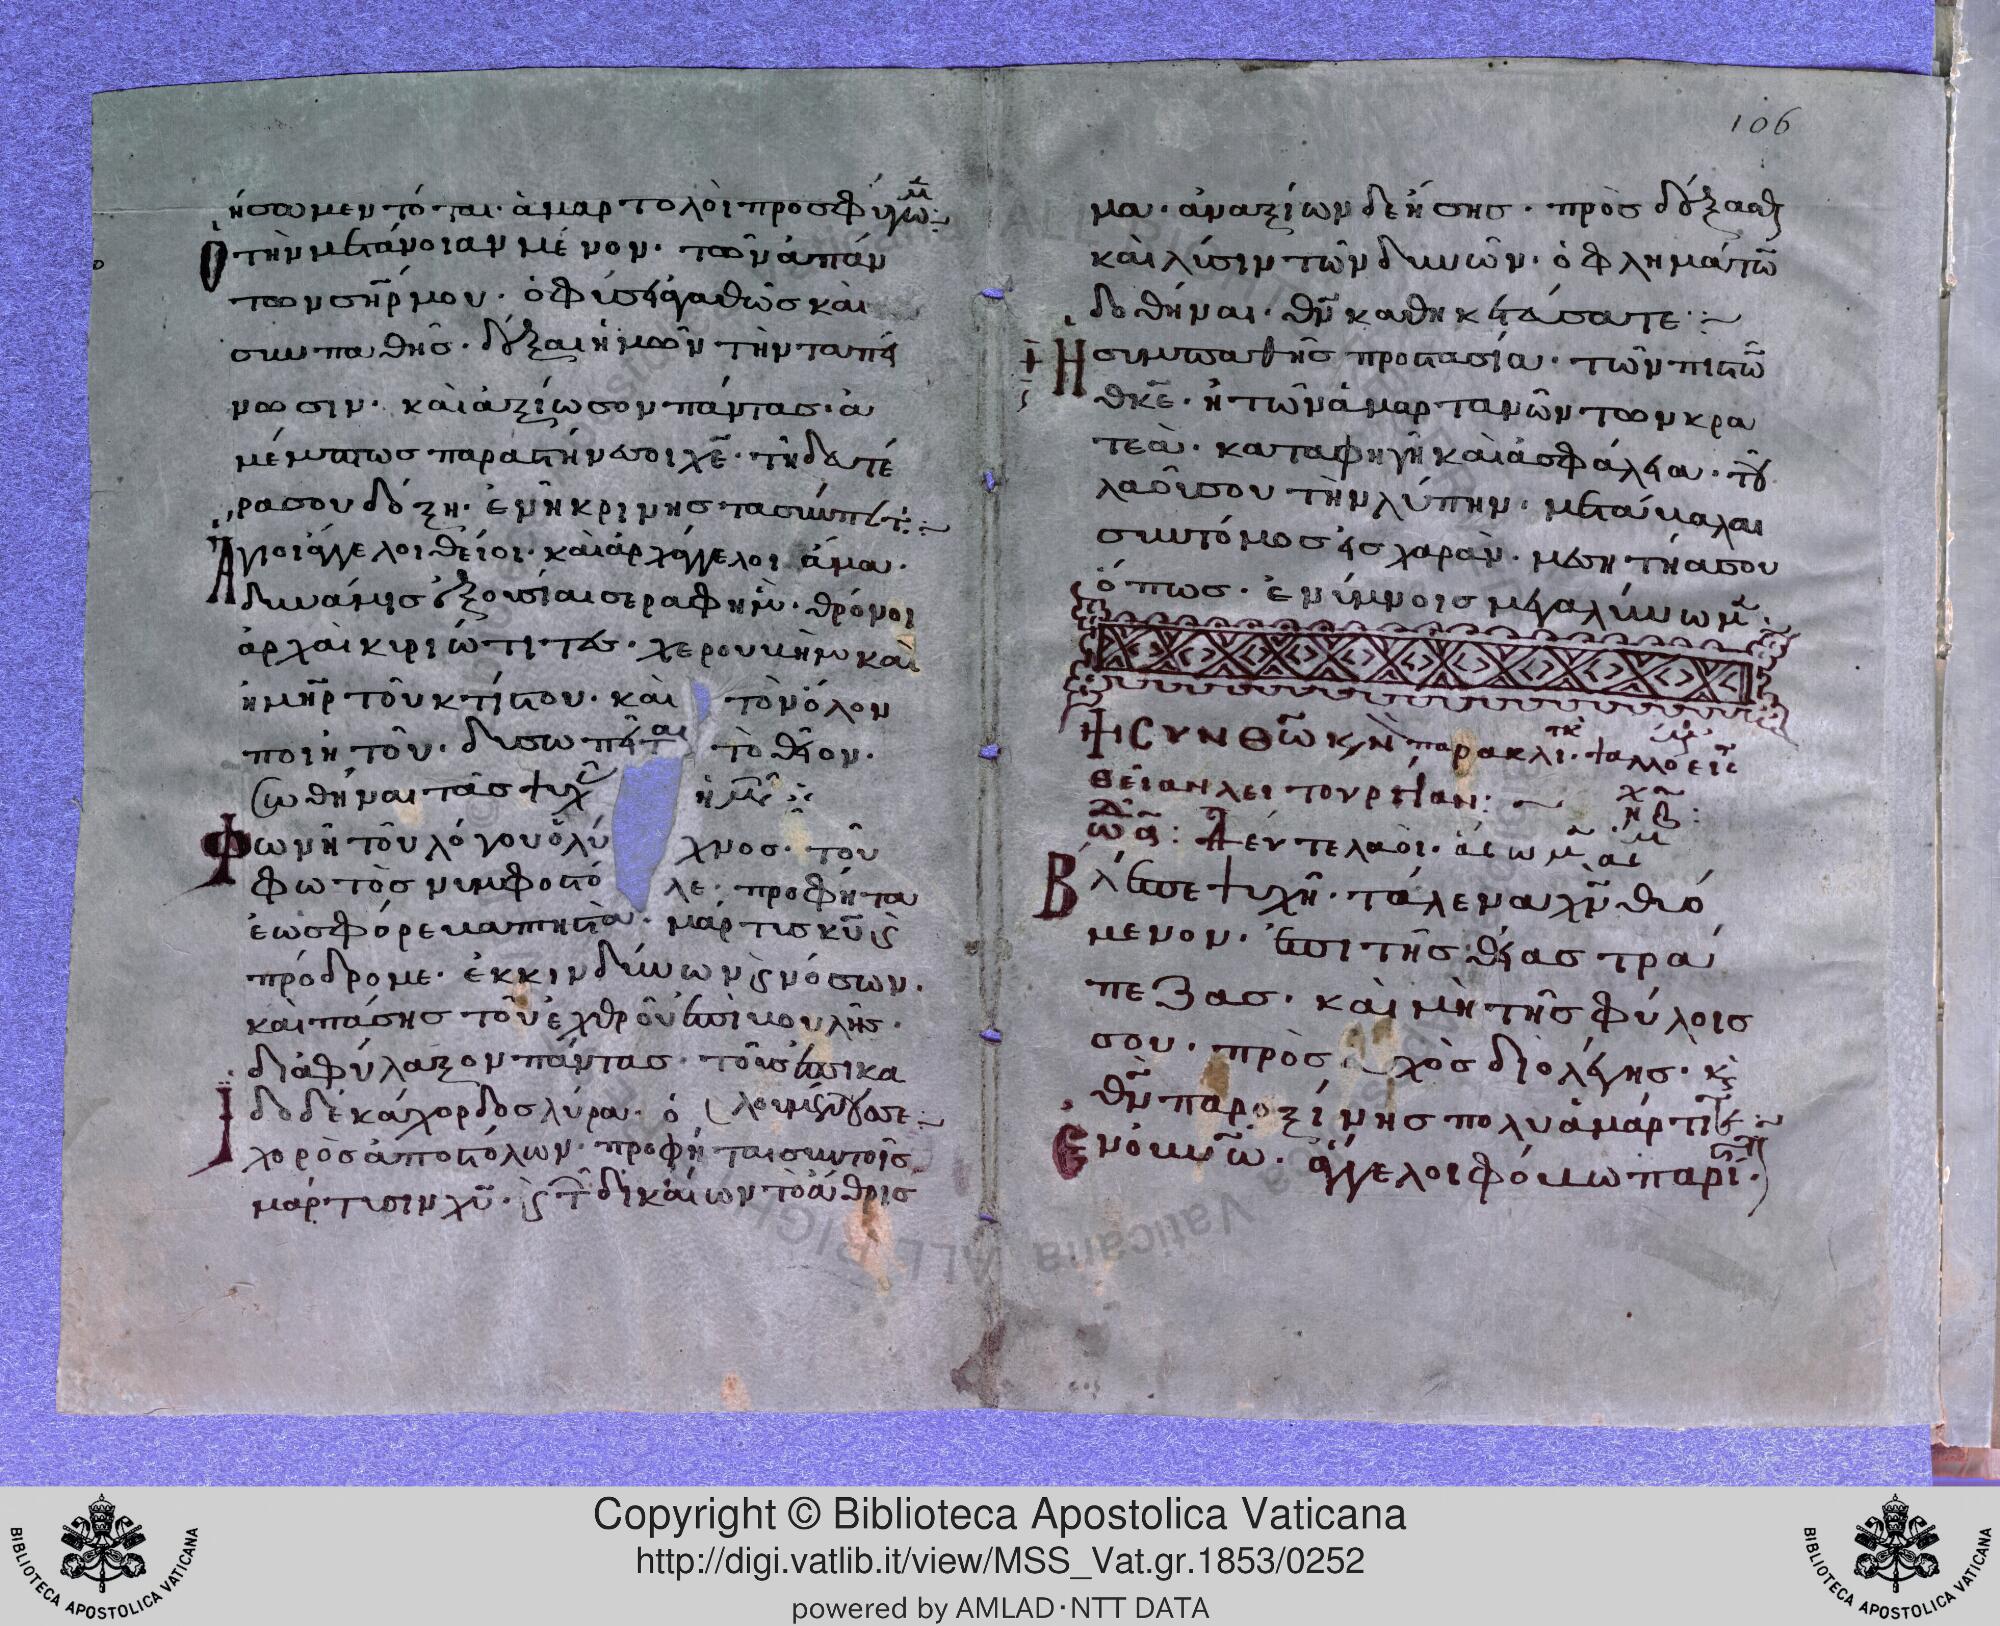 106
ήσωμεν τό ται· ἁμαρτολὸι προσφύγωμ
Ὁ τὴν μετάνοιαν μένον· τοὸν ἁπάν
τοον σπρ μου· ὁ φύσει ἀγαθῶσ και
συμπαθὴς· δόξαι ἡμοὸν τὴν ταπεί
νοσιν· καὶ ἀξίωσον πάντασ· ἀ
μέμπτωσ παραστήναι σοι χε· τῆ δευτέ
ρα σου δόξη·
Ἅγιοι ἄγγελοι θείοι· καὶ ἀρχάγγελοι ἅμα·
δυνάμισ ἐξουσίαι σεραφήμ· θρόνοι
ἀρχαὶ κιριώτιτες· χερουβὴμ καὶ
ἡ μηρ τοῦ κτίστου· καὶ τὸν ὅλον
ποιητοῦ· δυσωπεῖται τὸ θεῖον·
σωθήναι τὰσ ψυχ ἡμ
Φωνὴ τοῦ λόγου ὁ λύ χνοσ· τοῦ
φωτὸσ νυμφοστό λε· προφήτα
ἑωσφόρε βαπτιστὰ· μάρτισ κυ ϛ
πρόδρομε· ἐκ κινδύνων ϛ νόσων·
καὶ πάσησ τοῦ ἐχθροῦ ἐπιβουλῆς·
διαφύλαξον πάντασ· τοῦσ ἐπικα
Ἰδου δέκάχορδοσ λύρα· ὁ λουμέ
χορὸσ ἀποστόλων· προφήται συν τοῖς
μάρτυσιν χυ· ϛ τ δικαίων τὸ ἄθρισ
μα· ἀναξίων δεήσησ· πρὸσ δόξασθ
καὶ λύσιν τῶν δινῶν· ὀφλημάτω
δοθήναι· θν καθηκετεύσατε
Ἡ συμπαθὴς προστασία· τῶν πιστῶ
θκε· ἡ τῶν ἁμαρτανῶν τοον κρα
τεὰ· καταφηγὴ καὶ ἀσφάλεια· τοῦ
λαοῦ σου τὴν λύπην· μετάβαλαι
συντόμοσ εἰσ χαρὰν·
ὅπως· ἐν ὕμνοισ μεγαλύνωμ
ΣΥΝ ΘΩ παρακλι· ψαλλο εἰ
θεῖαν λειτουργίαν:
Δεύτε λαὸι·
Βλέπε ψυχὴ· τάλενα χν θυό
μενον· ἐπὶ τῆς θείας τρα
πεζασ· καὶ μὴ τῆς φύλοισ
σου· πρὸσ χὸσ διολέγησ· κ
θν παροξίνησ πολυάμάρτιτε
Ἐνόπιω· ἄγγελοι φόβω παρί
Copyright © Biblioteca Apostolica Vaticana
http://digi.vatlib.it/view/MSS_Vat.gr.1853/0252
powered by AMLAD·NTT DATA
BIBLIOTECA APOSTOLICA VATICANA
BIBLIOTECA APOSTOLICA VATICANA